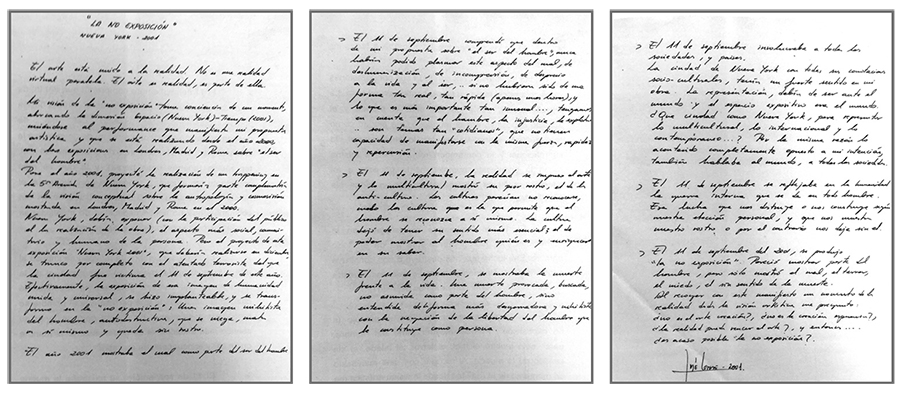 "LA NO EXPOSICIÓN"
NUEVA YORK - 2001
El arte está unido a la realidad. No es una realidad
virtual paralela. El arte es realidad, es parte de ella.
La visión de la "no exposición" toma conciencia de un momento,
abarcando la dimensión Espacio (Nueva York) - Tiempo (2001),
al performance que manifiesta mi propuesta
artística y que se está realizando desde el año 2000
con las exposiciones en Londres, Madrid y Roma sobre "el ser
del hombre".
Para el año 2001, proyecté la realización de un happening en
la 5ª Avenida de Nueva York, que formaría parte complementaria
de la visión conceptual sobre la antropología y cosmovisión
mostrada en Londres, Madrid y Roma en el 2000.
Nueva York, debía exponer (con la participación del público
en la realización de la obra), el aspecto más social, comuni-
tario y humano de la persona. Pero el proyecto de esta
exposición "Nueva York 2001", que debería realizarse en diciembre
se truncó por completo con el atentado terrorista del que
la ciudad fue víctima el 11 de septiembre de este año.
Efectivamente, la exposición de una imagen de humanidad
unida y universal, se hizo implanteable, y se trans-
formó en la "no exposición": Una imagen nihilista
del hombre, autodestructiva, que se niega, mata
a sí mismo y queda sin rostro.
El año 2001 mostraba el mal como parte del ser del hombre
> El 11 de septiembre comprendí que dentro
de mi propuesta sobre "el ser del hombre", nunca
habría podido plasmar este aspecto del mal, de
deshumanización, de incomprensión, de desprecio
a la vida y al ser,... si no hubiera sido de una
forma tan real, tan rápida (apenas una hora), y
lo que es más importante tan inusual...., tengamos
en cuenta que el hambre, la injusticia, la explota-
.. son temas tan "cotidianos", que no tienen
capacidad de manifestarse con la misma fuerza, rapidez
y repercusión.
> El 11 de septiembre, la realidad se impuso al arte
y lo multicultural mostró su peor rostro, el de la
anti-cultura. Las culturas parecían no reconocerse,
cuando la cultura es la que permite que el
hombre se reconozca a sí mismo. La cultura
dejó de tener su sentido más esencial; el de
poder mostrar al hombre quién es y enriquecer
en su saber.
> El 11 de septiembre, se mostraba la muerte
frente a la vida. Una muerte provocada, buscada,
no asumida como parte del hombre, sino
entendida del modo más desgarrador y nihilista
con la negación de la libertad del hombre que
le constituye como persona.
> El 11 de septiembre involucraba a todas las
sociedades, y países.
La ciudad de Nueva York con todas sus connotaciones
socio-culturales, tenía un fuerte sentido en mi
obra. La representación, debía de ser ante el
mundo y el espacio expositivo era el mundo.
¿Qué ciudad como Nueva York, para representar
lo multicultural, lo internacional y lo
contemporáneo...? Por la misma razón lo
acontecido completamente opuesto a mi intención,
también hablaba al mundo, a todas las sociedades.
> El 11 de septiembre se reflejaba en la humanidad
la guerra interna que se da en todo hombre.
Esa lucha que nos destruye o nos construye según
nuestra elección personal, y que nos muestra
nuestro rostro o por el contrario nos deja sin él.
> El 11 de septiembre del 2001, se produjo
"la no exposición". Pareció mostrar parte del
hombre, pero sólo mostró el mal, el terror,
el miedo, el sin sentido de la muerte.
Al recoger con este manifiesto un momento de la
realidad desde la visión artística me pregunto:
¿no es el arte creación?, ¿no es la creación esperanza?,
¿la realidad puede vencer al arte?, y entonces....
¿es acaso posible "la no exposición"?.
- 2001.